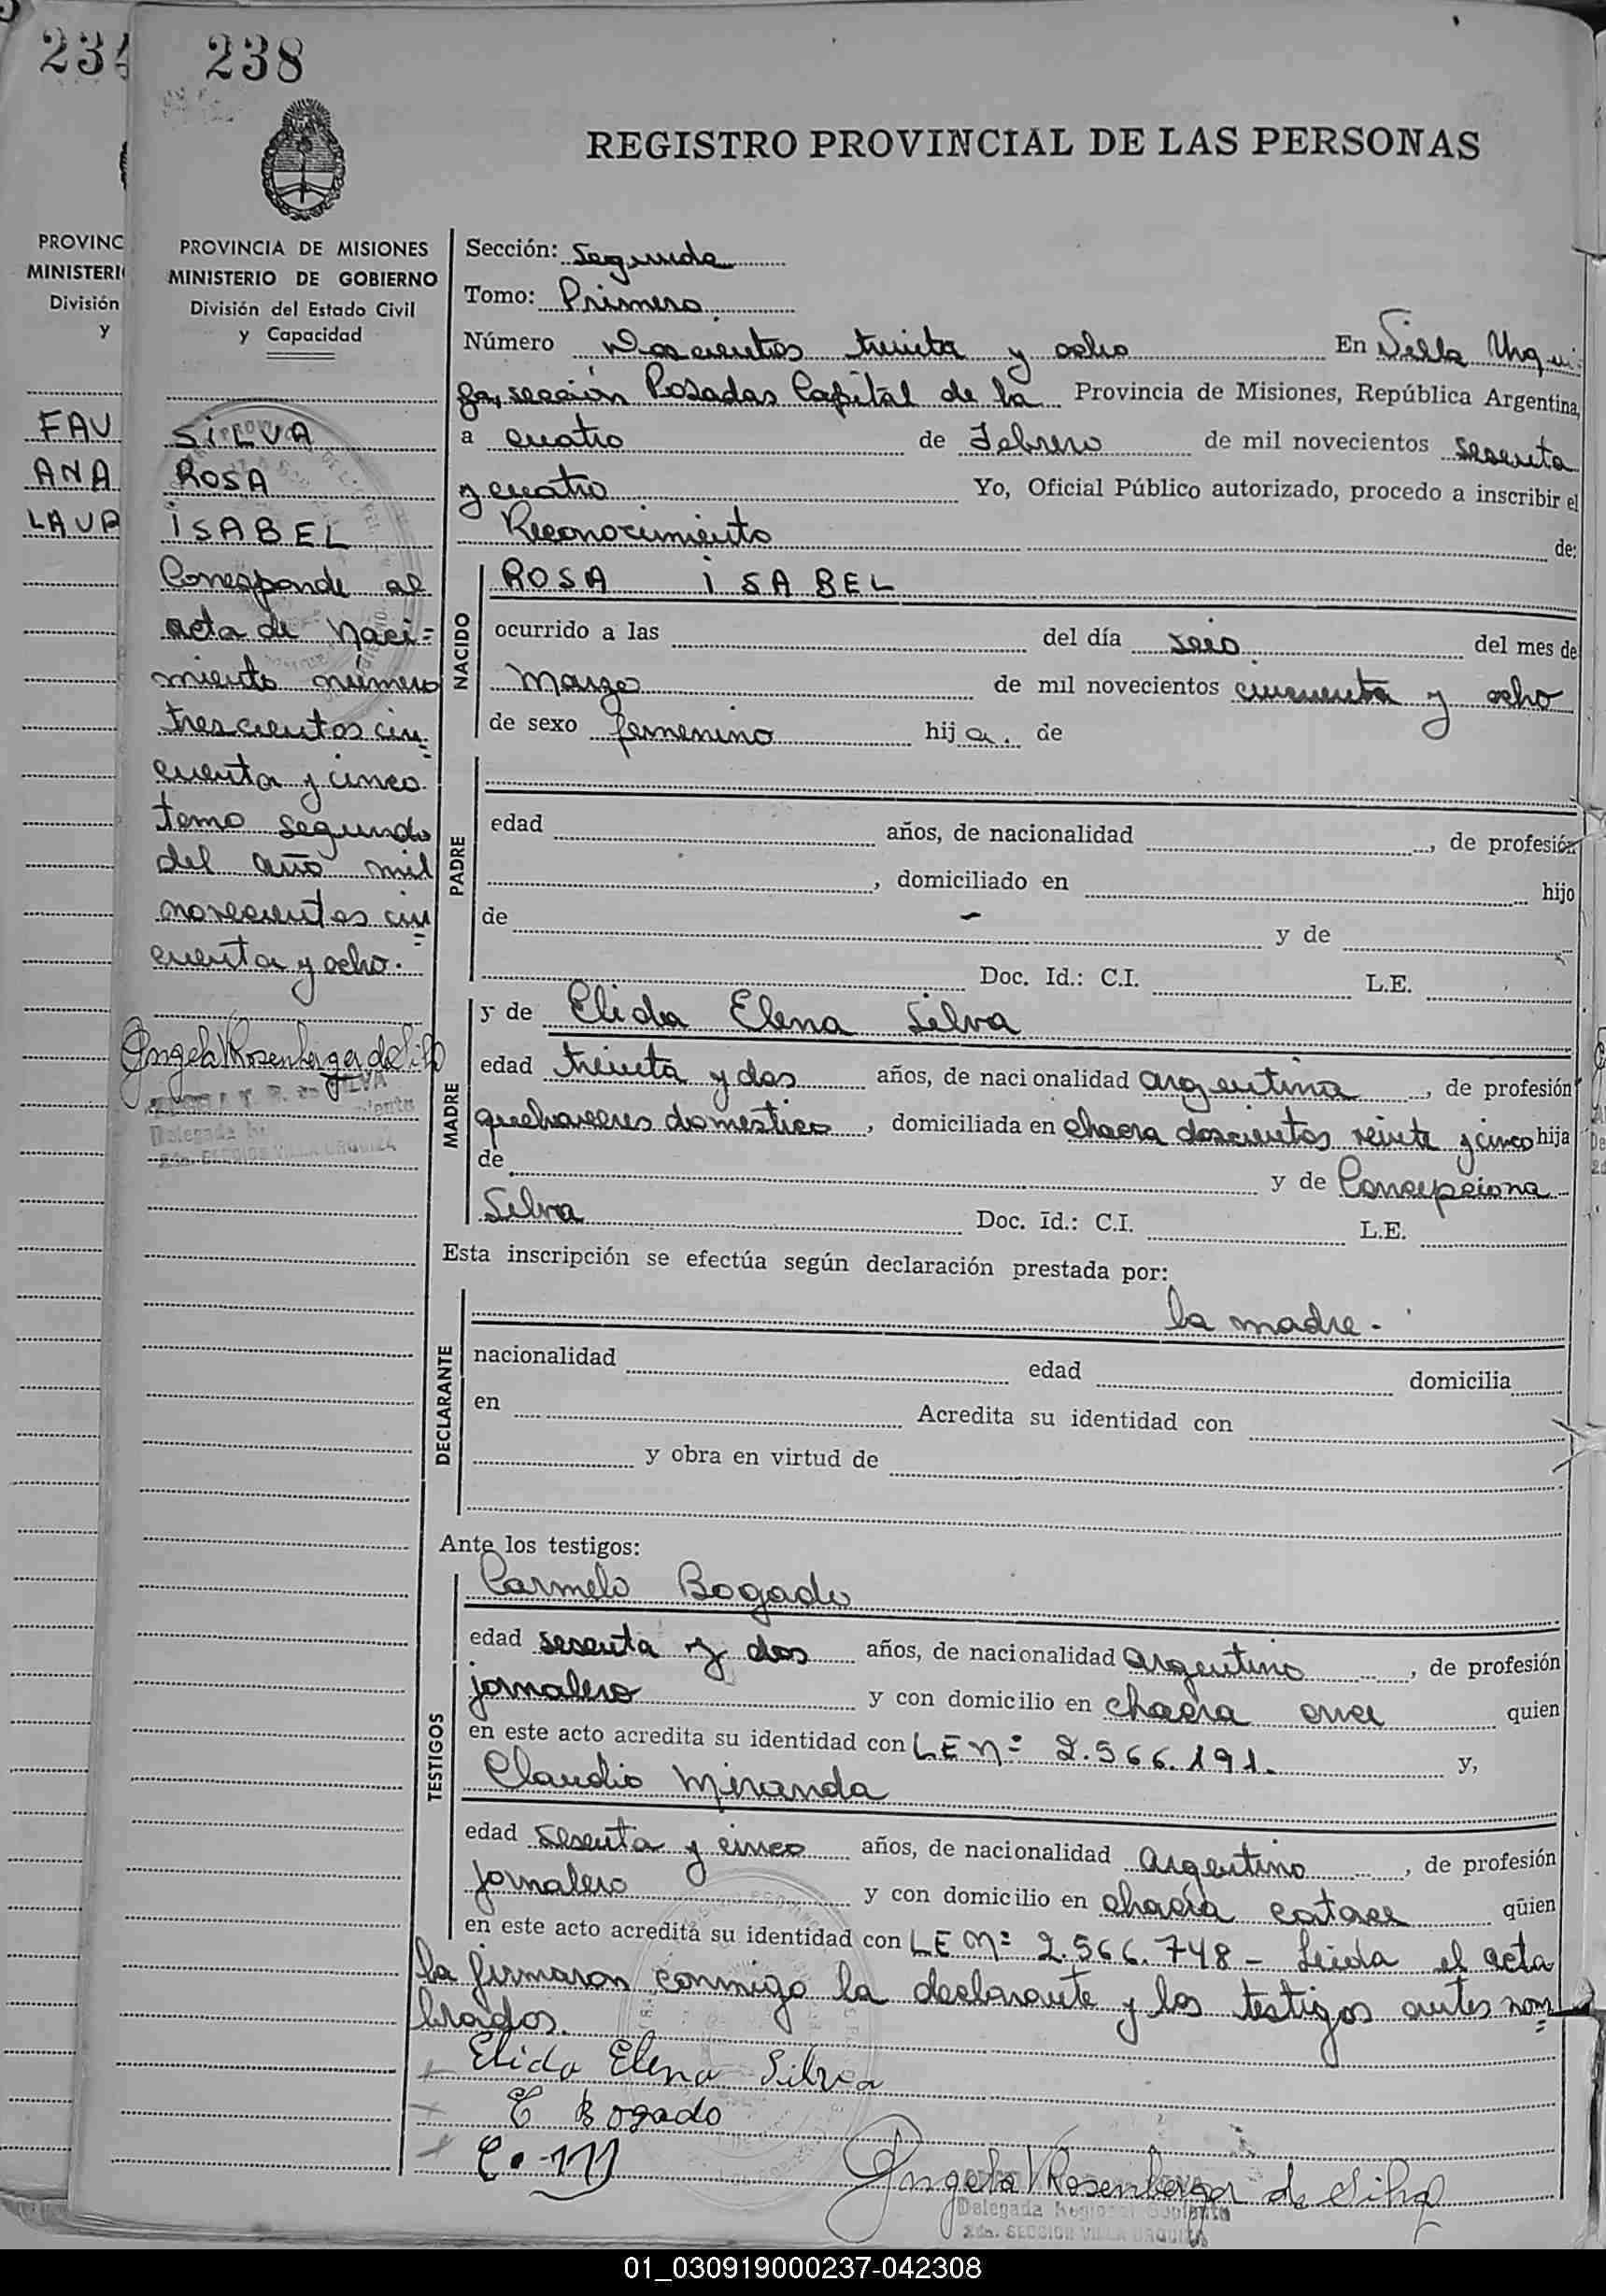 234
238
REGISTRO PROVINCIAL DE LAS PERSONAS
PROVINC
MINISTERI
División
y
FAU
ANA
LAUR
PROVINCIA DE MISIONES
MINISTERIO DE GOBIERNO
División del Estado Civil
y Capacidad
SILVA
ROSA
ISABEL
Corresponde al
acta de naci=
miento número
trescientos cin
cuenta y cinco
tomo segundo
del año mil
novecientos cin
cuenta y ocho.
Angela V Rosenberger de Silva
Sección: Segunda
Tomo: Primero
Número Doscientos treinta y ocho En Villa Urqui
za, sección Posadas Capital de la Provincia de Misiones, República Argentina,
a cuatro de Febrero de mil novecientos sesenta
y cuatro Yo, Oficial Público autorizado, procedo a inscribir el
Reconocimiento de:
NACIDO
ROSA ISABEL
ocurrido a las del día seis del mes de
Marzo de mil novecientos cincuenta y ocho
de sexo femenino hija. de
PADRE
edad años, de nacionalidad , de profesión
, domiciliado en hijo
de y de
Doc. Id.: C.I. L.E.
MADRE
y de Elida Elena Silva
edad treinta y dos años, de nacionalidad argentina , de profesión
quehaceres domestico , domiciliada en chacra doscientos veinte y cinco hija
de y de Concepciona
Silva Doc. Id.: C.I. L.E.
Esta inscripción se efectúa según declaración prestada por:
DECLARANTE
la madre.
nacionalidad edad domicilia
en Acredita su identidad con
y obra en virtud de
Ante los testigos:
TESTIGOS
Carmelo Bogado
edad sesenta y dos años, de nacionalidad Argentino , de profesión
jornalero y con domicilio en chacra once quien
en este acto acredita su identidad con L E Nº 2.566.191. y,
Claudio Miranda
edad sesenta y cinco años, de nacionalidad Argentino , de profesión
jornalero y con domicilio en chacra catorce quien
en este acto acredita su identidad con L E Nº 2.566.748 - Leida el acta
la firmaron conmigo la declarante y los testigos antes nom=
brados.
Elida Elena Silva
C Bogado
C. M
Angela V Rosenberger de Silva
Delegada Regional Suplente
2da. SECCION VILLA URQUIZA
01_030919000237-042308